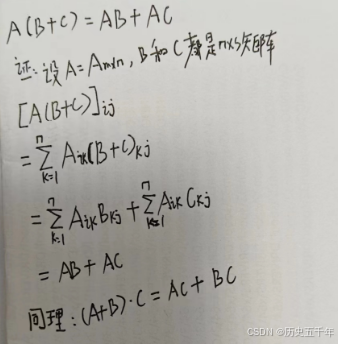 A(B+C)=AB+AC
证:设A=Amxn,B和C都是nxs矩阵
[A(B+C)]ij
=∑ⁿₖ₌₁ Aik(B+C)kj
=∑ⁿₖ₌₁ AikBkj+∑ⁿₖ₌₁ AikCkj
=AB+AC
同理:(A+B)·C=AC+BC
CSDN @历史五千年